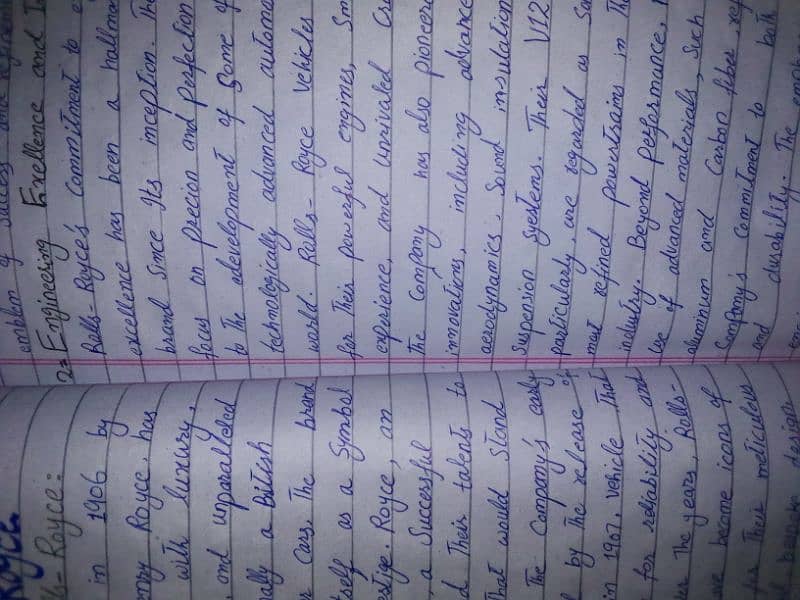 Royce
- Royce:
in 1906 by
Royce, has
with luxury,
and unparalleled
a British
Cars. The brand
itself as a Symbol
Royce, an
a Successful
Their talents to
That would Stand
The Company's early
by The release of
in 1907, vehicle That
for reliability and
The years, Rolls-
become icons of
Their meticulous
bespoke design
emblem of Success and
2= Engineering Excellence and
Rolls-Royce's Commitment to
excellence has been a
brand Since Its inception. The
focus on Precion and Perfection
to The adevelopment of Some of
technologically advanced
world. Rolls-Royce Vehicles
for Their powerful engines,
experience, and unrivaled
The Company has also
innovations, including
aerodynamics, Sound insulation
Suspension Systems. Their V12
particularly, are regarded as
most refined powertrains in
industry. Beyond Performance,
use of advanced materials, Such
aluminum and Carbon fiber,
Company's Commitment to both
and durability. The